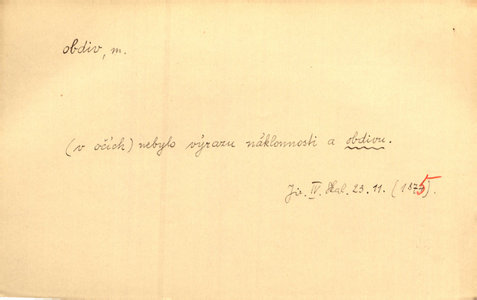 obdiv, m.
(v očích) nebylo výrazu náklonnosti a obdivu.
Jir. IV. Skal. 23. 11. (1875).